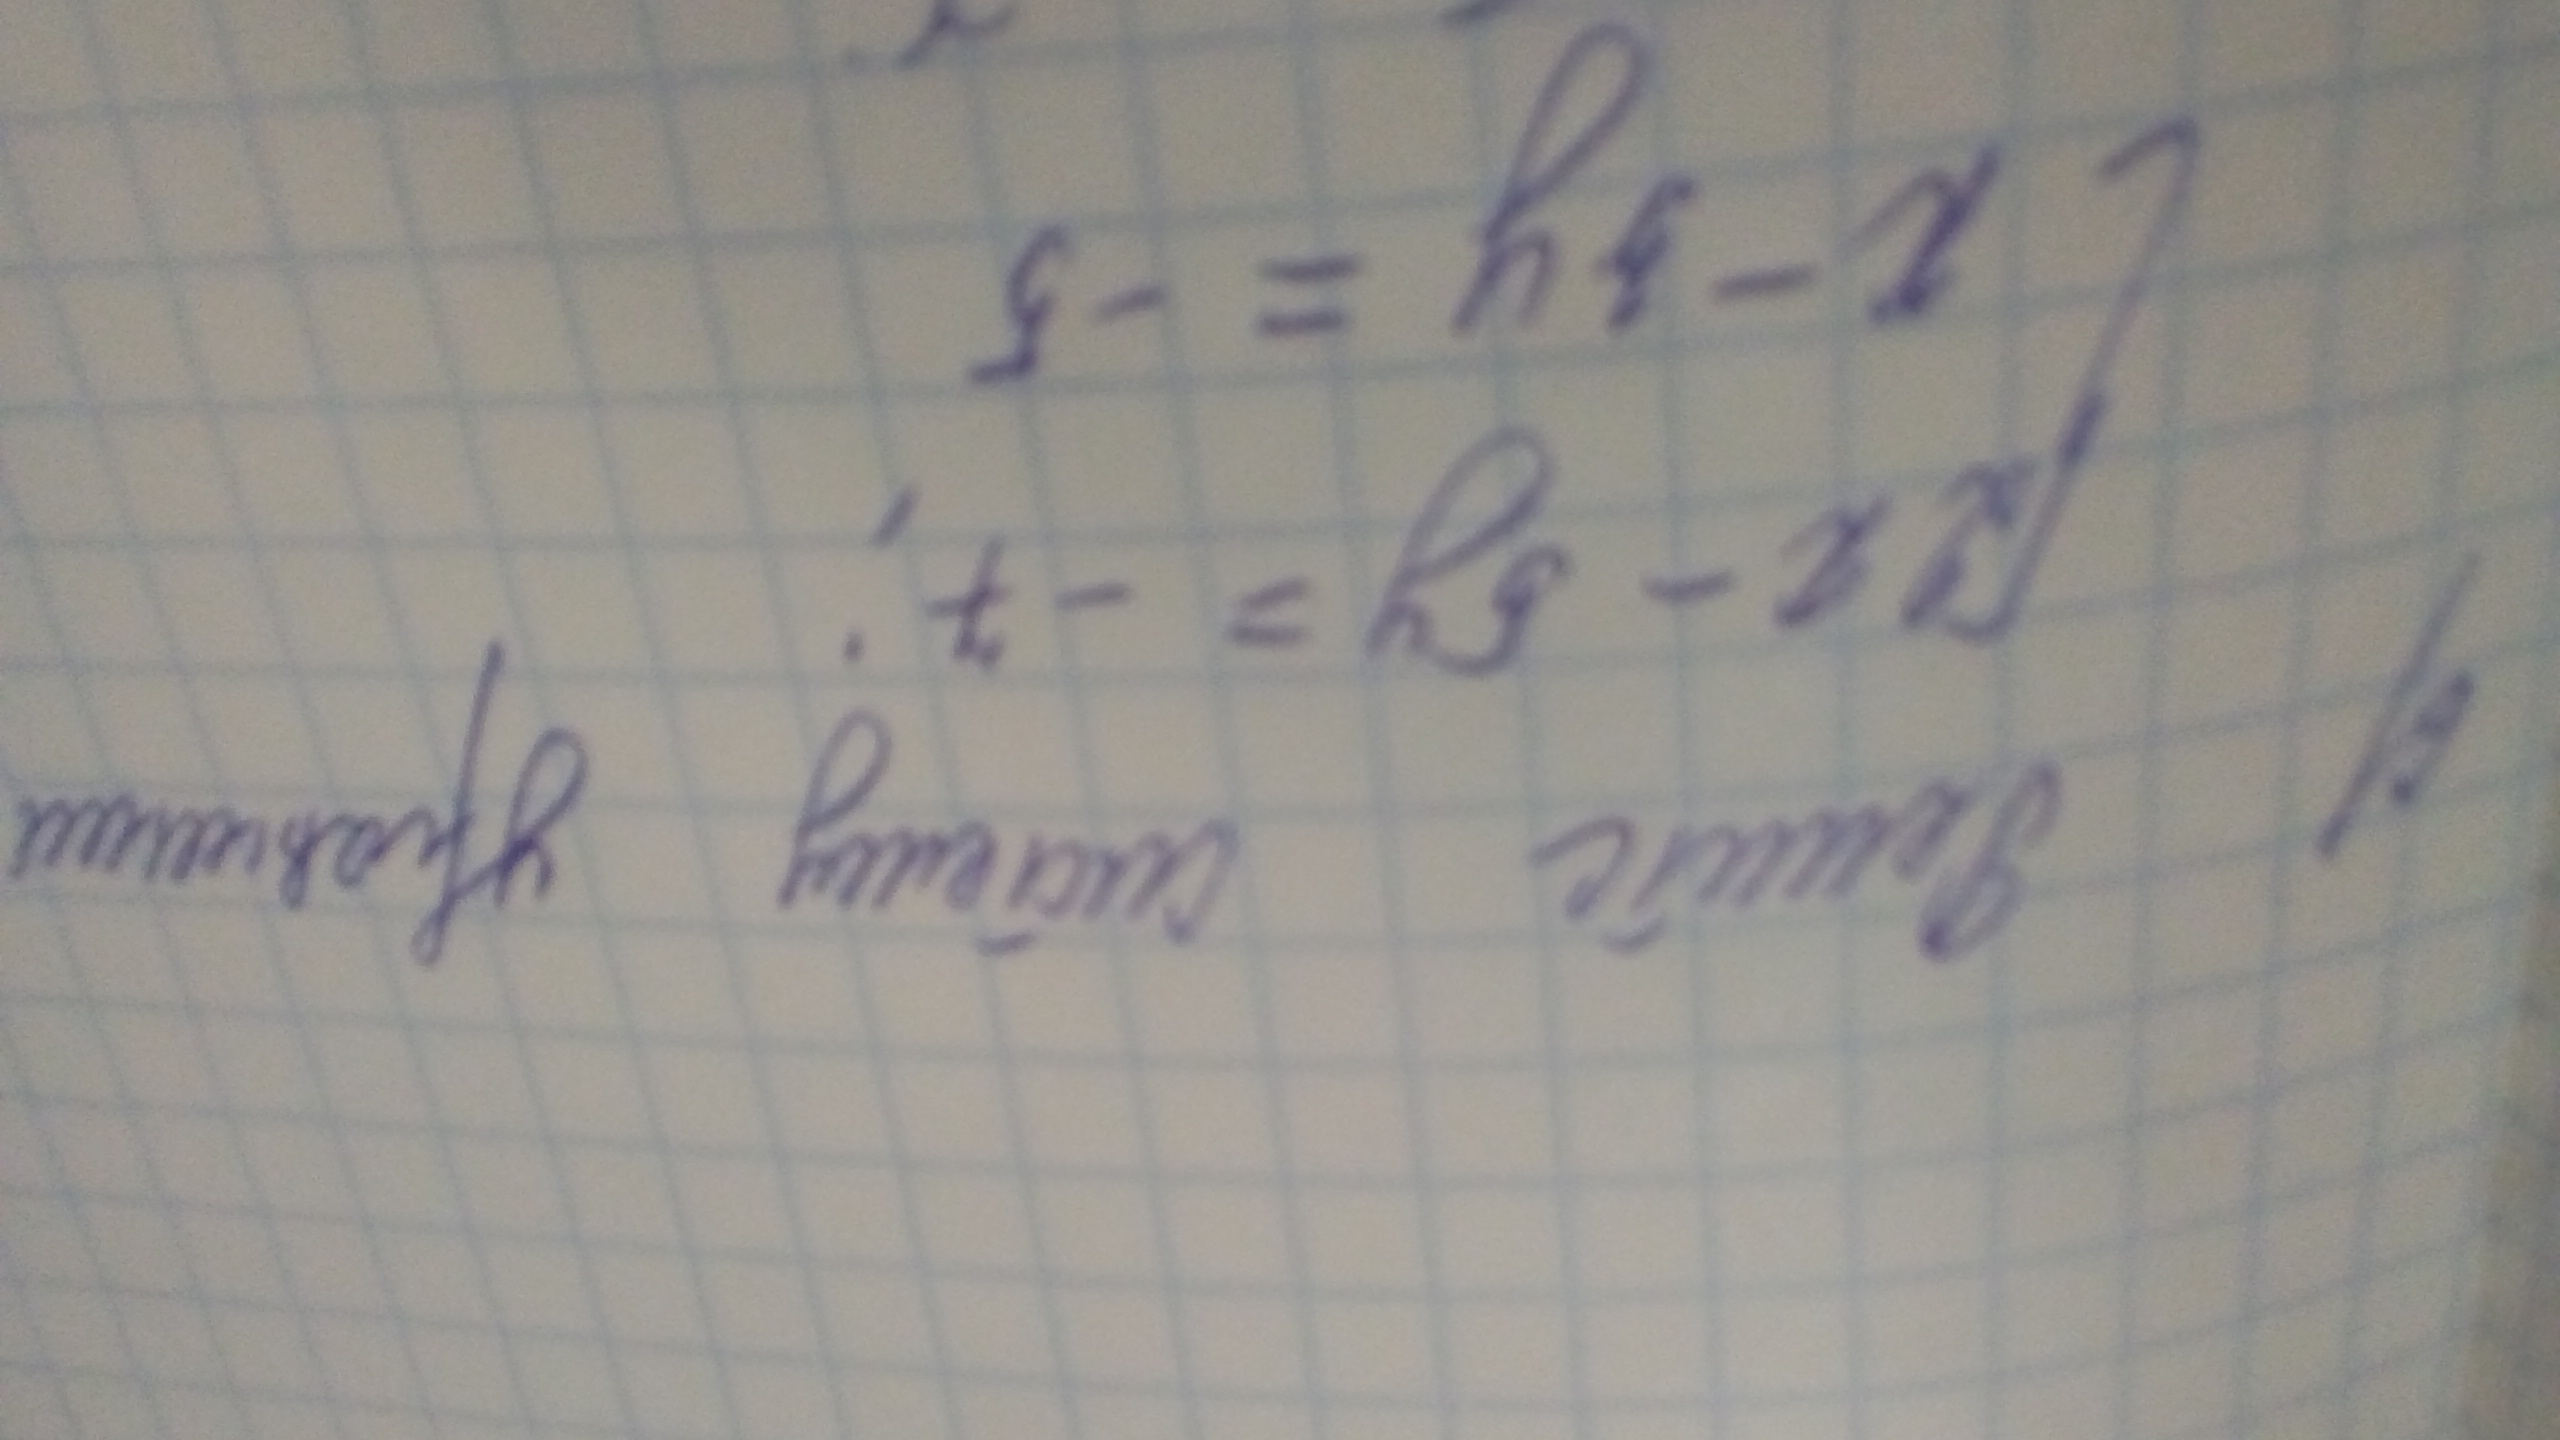 Решите систему уравнений
2x - 5y = -7;
x - 3y = -5